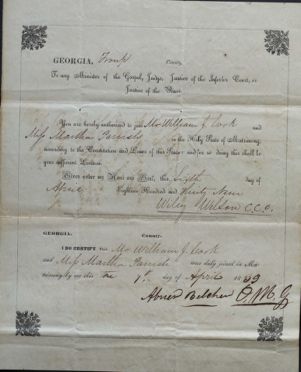 GEORGIA, Troup County.
To any Minister of the Gospel, Judge, Justice of the Inferior Court, or
Justice of the Peace.
You are hereby authorized to join Mr William J. Cook and
Miss Martha in the Holy State of Matrimony,
according to the Constitution and Laws of this State: and for so doing this shall be
your sufficient License.
Given under my Hand and Seal, this day of
April Eighteen Hundred and Thirty Nine
Wiley Wilson C.C.O.
GEORGIA, County.
I DO CERTIFY that Mr William J. Cook
and Miss Martha was duly joined in Ma-
trimony by me this day of April 1839
Abner Belcher